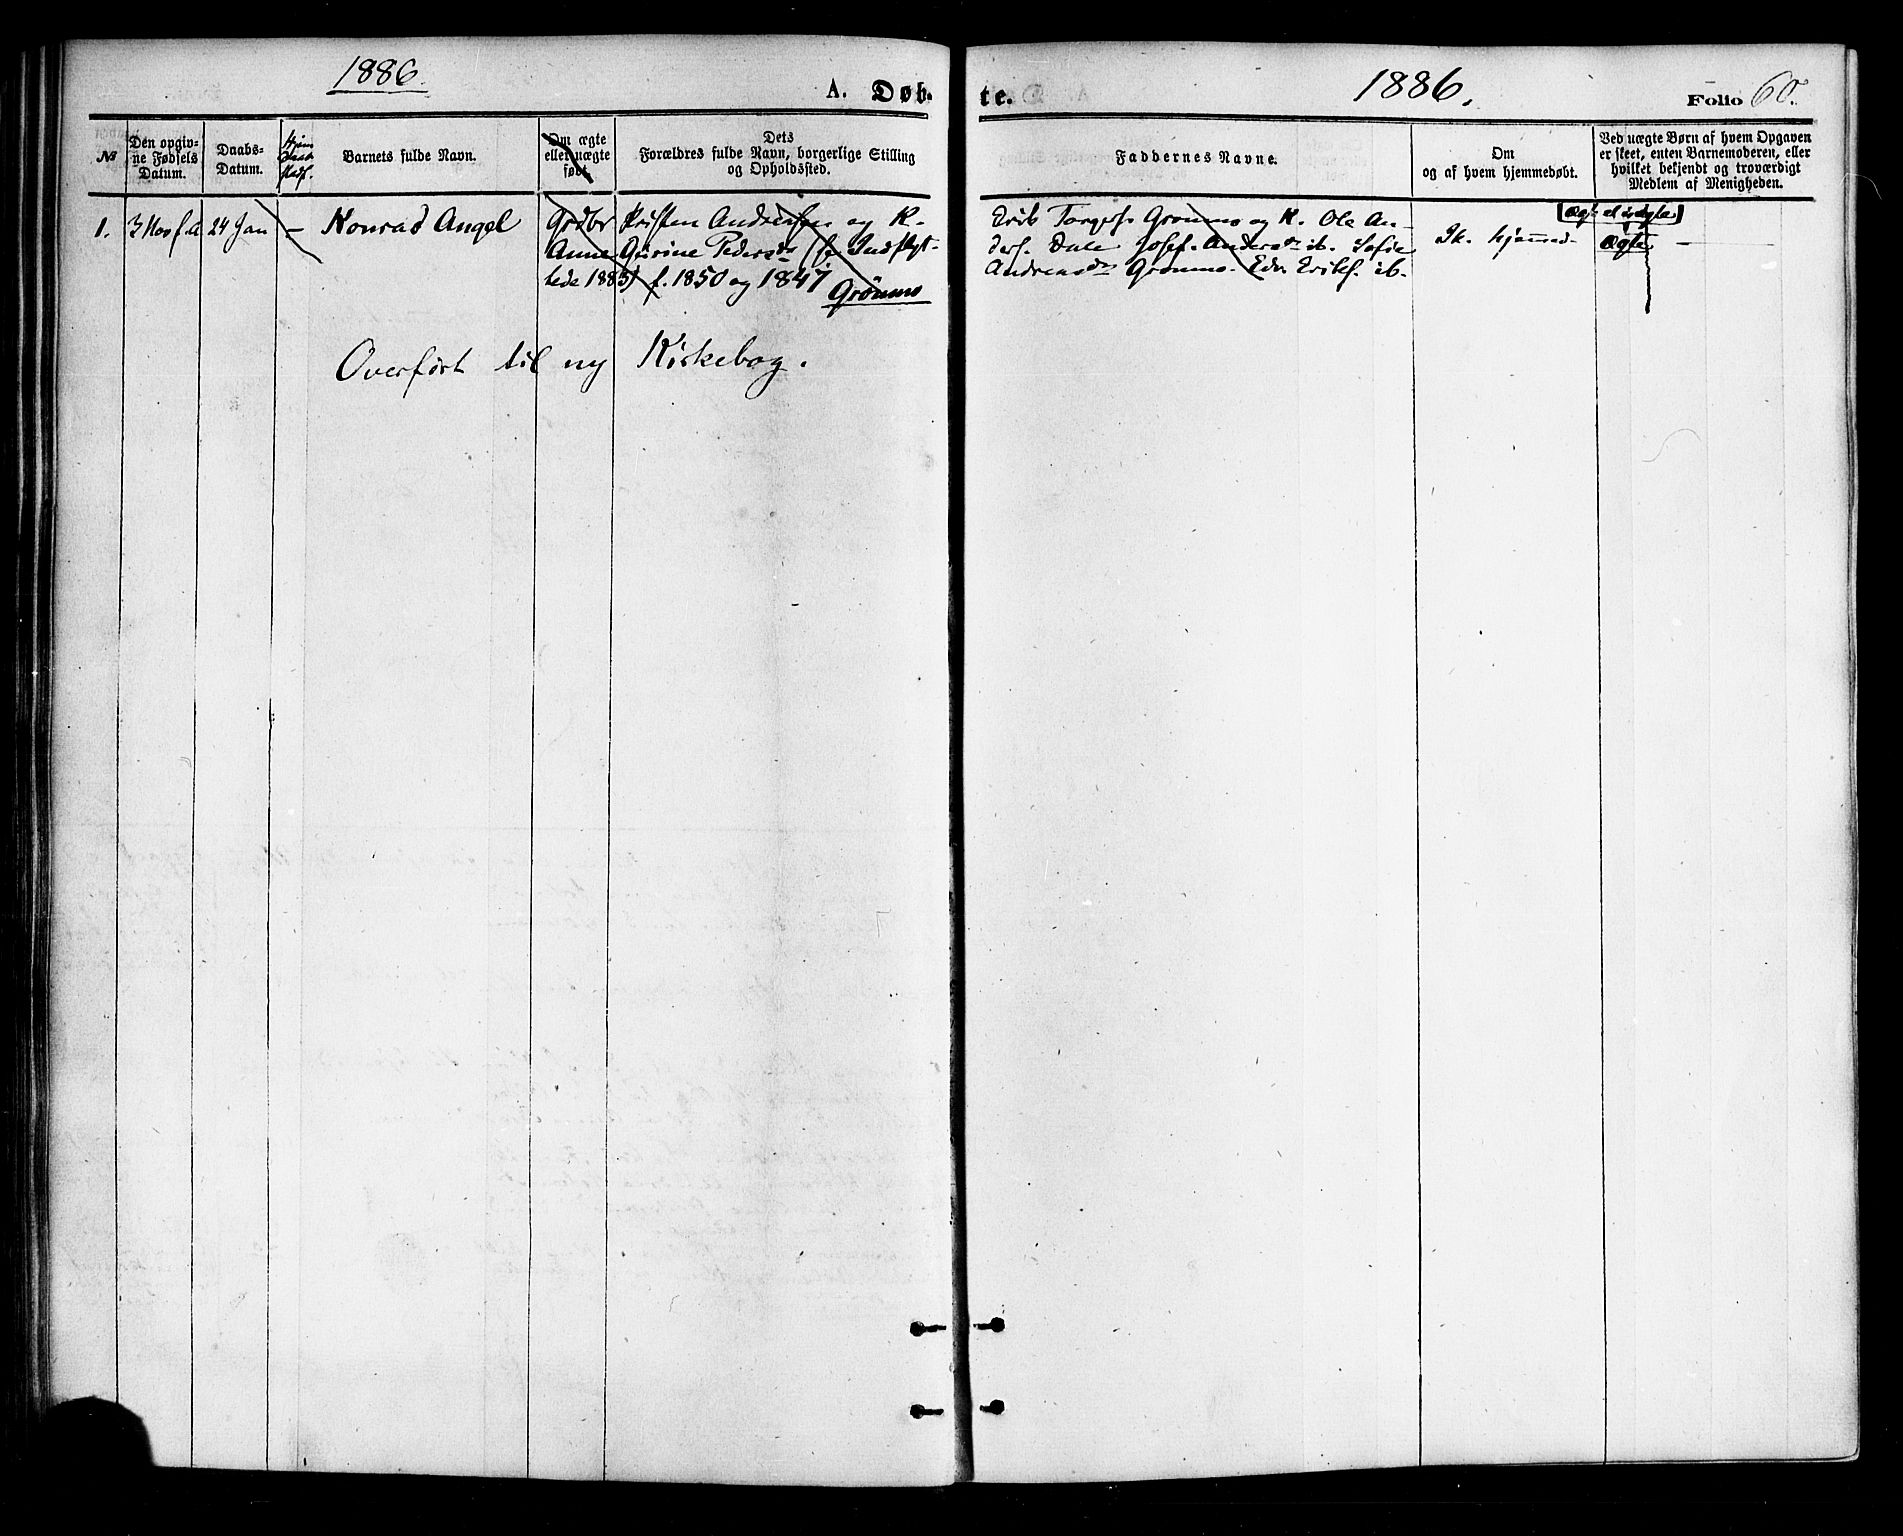 1886.
A. Døb-
№
Den opgiv-
ne Fødsels
Datum.
Daabs-
Datum.
Barnets fulde Navn.
Om ægte
eller uægte
født.
Dets
Forældres fulde Navn, borgerlige Stilling
og Opholdssted.
1. 3 Nov f. A 24 Jan – Konrad Angel
Grdbr Kristen Andreasen og K.
Anne Gurine Pedersdr (f Indflyt-
tede 1885) f. 1850 og 1847
Grönmo
Overført til ny Kirkebog.
te.
1886.
Folio 60.
Faddernes Navne.
Om
og af hvem hjemmedøbt.
Ved uægte Børn af hvem Opgaven
er skeet, enten Barnemoderen, eller
hvilket bekjendt og troværdigt
Medlem af Menigheden.
Erik Torgers. Grönmo og K. Ole An-
ders. Dale Josef. Andersdr ib. Sofie
Andreasdr Grönmo. Edv. Eriks. ib.
Ik. hjemmed.
[Ægte el uægte]
Ægte –